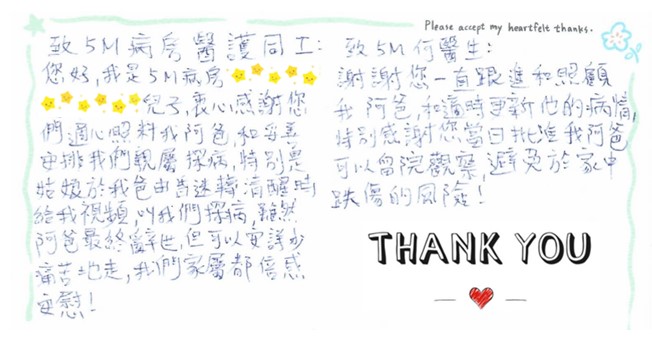 Please accept my heartfelt thanks.
致5M病房醫護同工:
您好,我是5M病房
兒子,衷心感謝您
們適心照料我阿爸,和每善
安排我們親屬探病,特別是
姑娘於我爸由昏迷轉清醒時
給我視頻,叫我們探病,雖然
阿爸最終辭世,但可以安詳少
痛苦地走,我們家屬都倍感
安慰!
致5M何醫生:
謝謝您一直跟進和照顧
我阿爸,和適時更新他的病情,
特別感謝您當日批准我阿爸
可以留院觀察,避免於家中
跌傷的風險!
THANK YOU